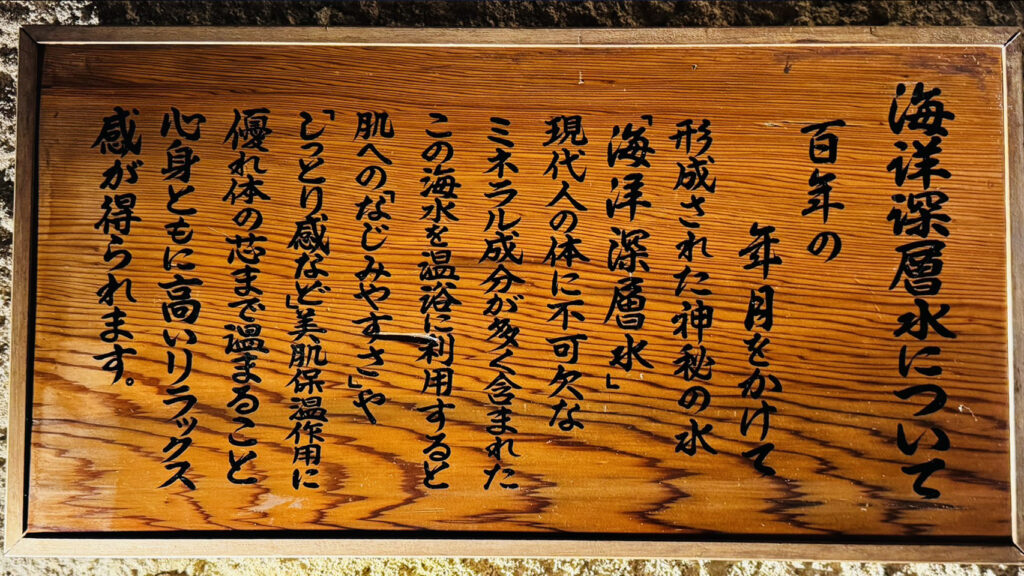 海洋深層水について
百年の
年月をかけて
形成された神秘の水
「海洋深層水」
現代人の体に不可欠な
ミネラル成分が多く含まれた
この海水を温浴に利用すると
肌への「なじみやすさ」や
「しっとり感など」美肌保温作用に
優れ体の芯まで温まること
心身ともに高いリラックス
感が得られます。